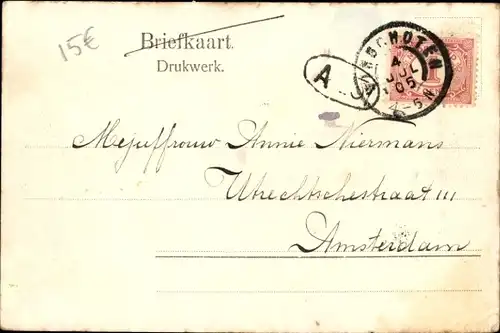 15€
Briefkaart.
Drukwerk.
A
4 JUL 05
4-6N
1
Mejuffrouw Annie Niermans
Utrechtschestraat 111
Amsterdam